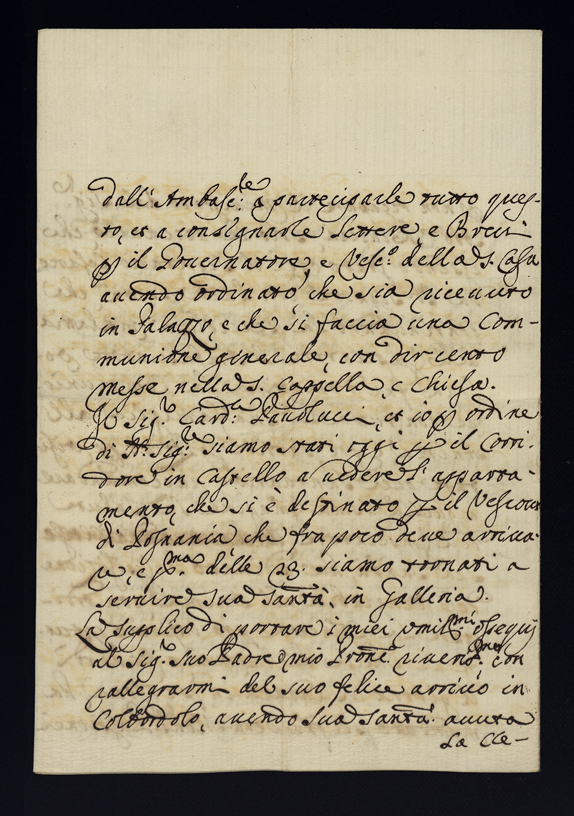 dall' Ambasc.te a parteciparle tutto ques-
to, et a consignarle Lettere, e Brevi
p il Governatore, e Vesc.o della S. Casa
avendo ordinato, che sia ricevuto
in Palazzo, e che si faccia una Com-
munione generale, con ducento
messe nella S. Cappella, e Chiesa.
Il Sig.r Card.le Pavolucci, et io p ordine
di N. Sig.re siamo stati oggi p il Corri-
dore in Castello a vedere l'apparta-
mento, che si è destinato p il Vescovo
di Posnania che fra poco deve arriva-
re, e p.ma delle 23. siamo tornati a
servire Sua Santà. in Galleria.
La supplico di portare i miei umil.mi ossequij
al Sig.r suo Padre mio Prone. riveri.mo con
rallegrarmi del suo felice arrivo in
Colbordolo, avendo Sua Santà. avuta
La Cle-